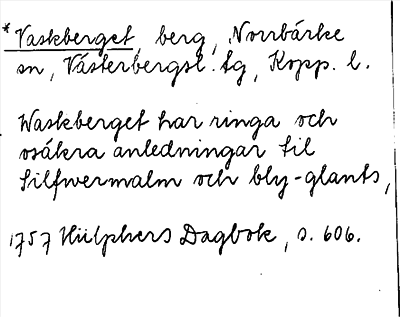 *Vaskberget, berg, Norrbärke
sn, Västerbergsl. tg, Kopp. l.
Waskberget har ringa och
osäkra anledningar til
Silfwermalm och bly-glants,
1757 Hülphers Dagbok, s. 606.